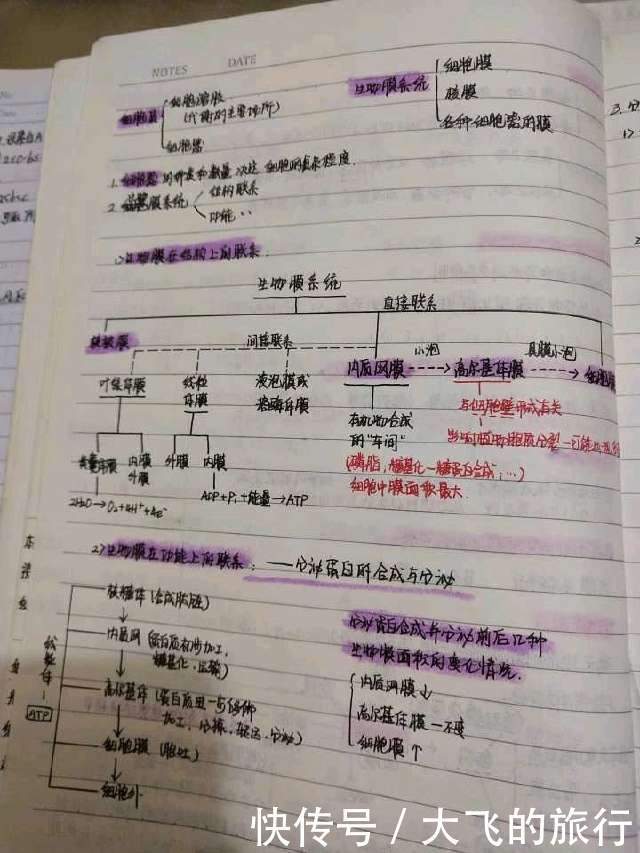 NOTES DATE
细胞质
细胞溶胶
(代谢的主要场所)
细胞器
生物膜系统
细胞膜
核膜
各种细胞器的膜
1. 细胞器的种类和数量决定细胞的复杂程度.
2. 生物膜系统
结构联系
功能 〃
1) 生物膜在结构上的联系.
生物膜系统
直接联系
间接联系
核被膜
叶绿体膜
线粒体膜
液泡膜或
溶酶体膜
内质网膜
小泡
高尔基体膜
具膜小泡
细胞膜
类囊体膜
内膜
外膜
外膜
内膜
2H₂O→O₂+4H⁺+4e⁻
ADP+Pi+能量→ATP
有机物合成
的"车间"
(磷脂, 糖基化—糖蛋白合成, …)
细胞中膜面积最大
与细胞壁形成有关
2) 生物膜在功能上的联系: ——分泌蛋白的合成与分泌
核糖体 (合成肽链)
内质网 (蛋白质初步加工,
糖基化, 运输)
高尔基体 (蛋白质进一步修饰
加工, 分拣, 转运, 分泌)
细胞膜 (胞吐)
细胞外
线粒体
ATP
分泌蛋白合成并分泌前后几种
生物膜面积的变化情况.
内质网膜↓
高尔基体膜—不变
细胞膜↑
快传号 / 大飞的旅行